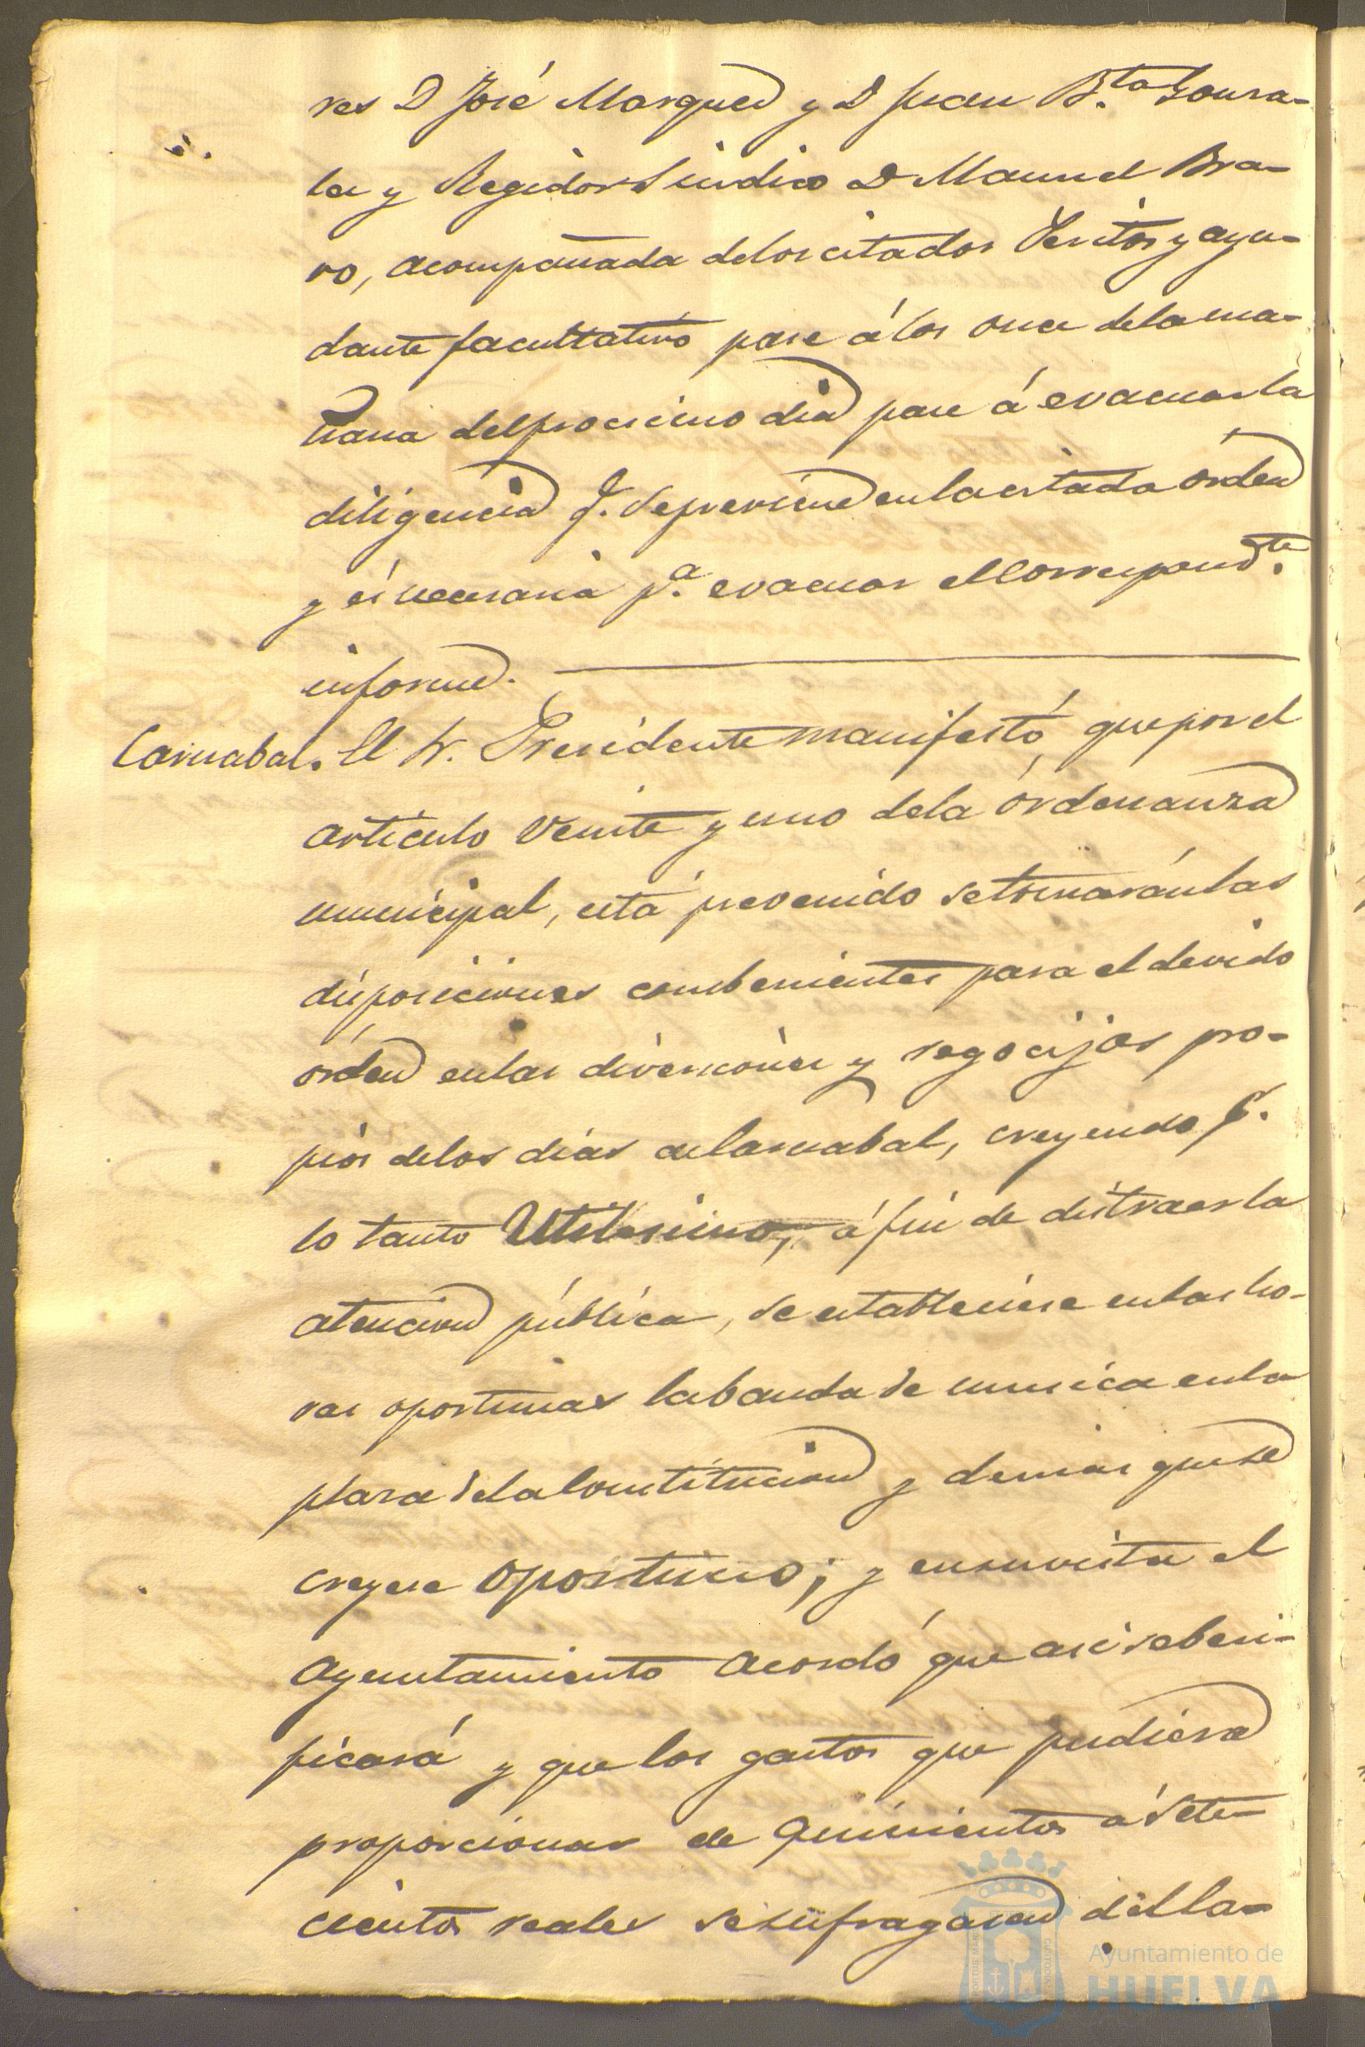 res D José Marquez y D Juan B.ta Gonza-
les y Regidor Sindico D Manuel Bra-
vo, acompañada delos citados Peritos y ayu-
dante facultativo pase á las once dela ma-
ñana del procsimo dia pase á evacuar la
diligencia q. se previene en la citada órden
y és necesaria p.a evacuar el Correspond.te
informe.
Carnabal. El Sr. Presidente manifestó, que por el
articulo Veinte y uno dela órdenanza
municipal, está prevenido se tomarán las
disposiciones combenientes para el devido
órden en las diversiones y regocijos pro-
pios delos dias de Carnabal, creyendo p.
lo tanto Utilisimo, á fin de distraer la
atencion pública, se estableciese en las ho-
ras oportunas la banda de musica en la
plaza de la Constitucion y demas que se
creyese oportuno; y en su vista el
Ayuntamiento Acordó que asi se beri-
ficará y que los gastos que pudiera
proporcionar de Quinientos á sete-
cientos reales se sufragasen del la-
Ayuntamiento de
HUELVA